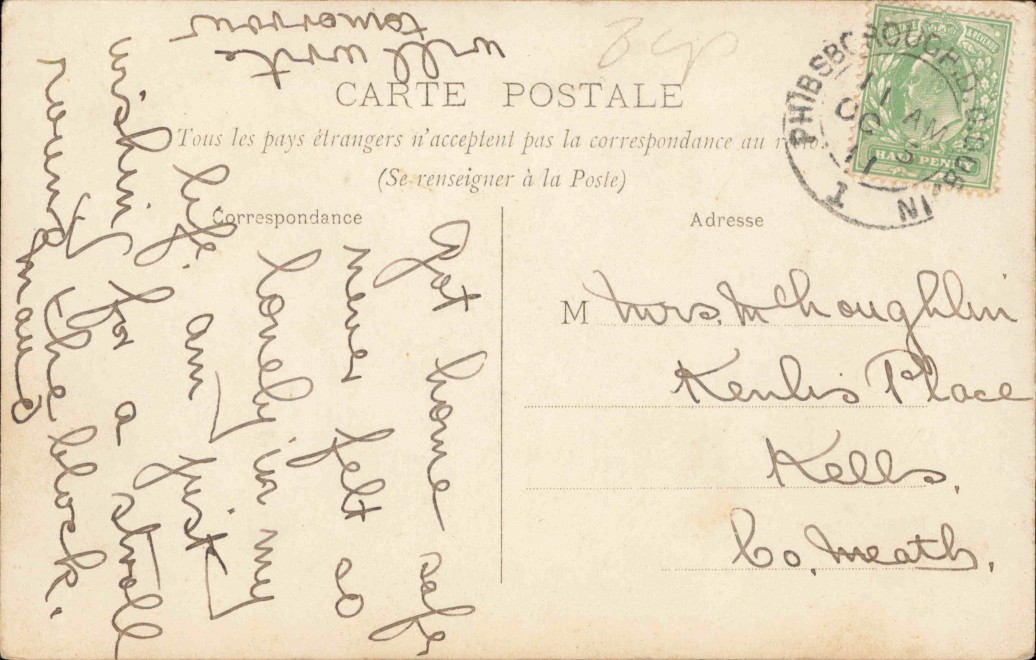 CARTE POSTALE
Tous les pays étrangers n'acceptent pas la correspondance au
(Se renseigner à la Poste)
Correspondance
Adresse
Got home safe
never felt so
lonely in my
life. am just
wishing for a stroll
round the block.
maud
will write
tomorrow
M Mrs. McLoughlin
Kenlis Place
Kells,
Co. Meath.
PHIBSBOROUGH.B.O. DUBLIN
11 AM
OC 8
11
1
HALF PENNY
& REVENUE